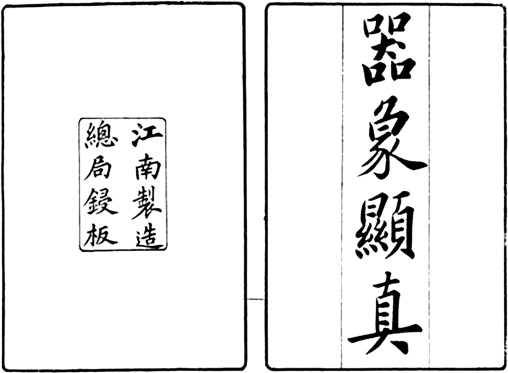 器象顯真
江南製造
總局鋟板